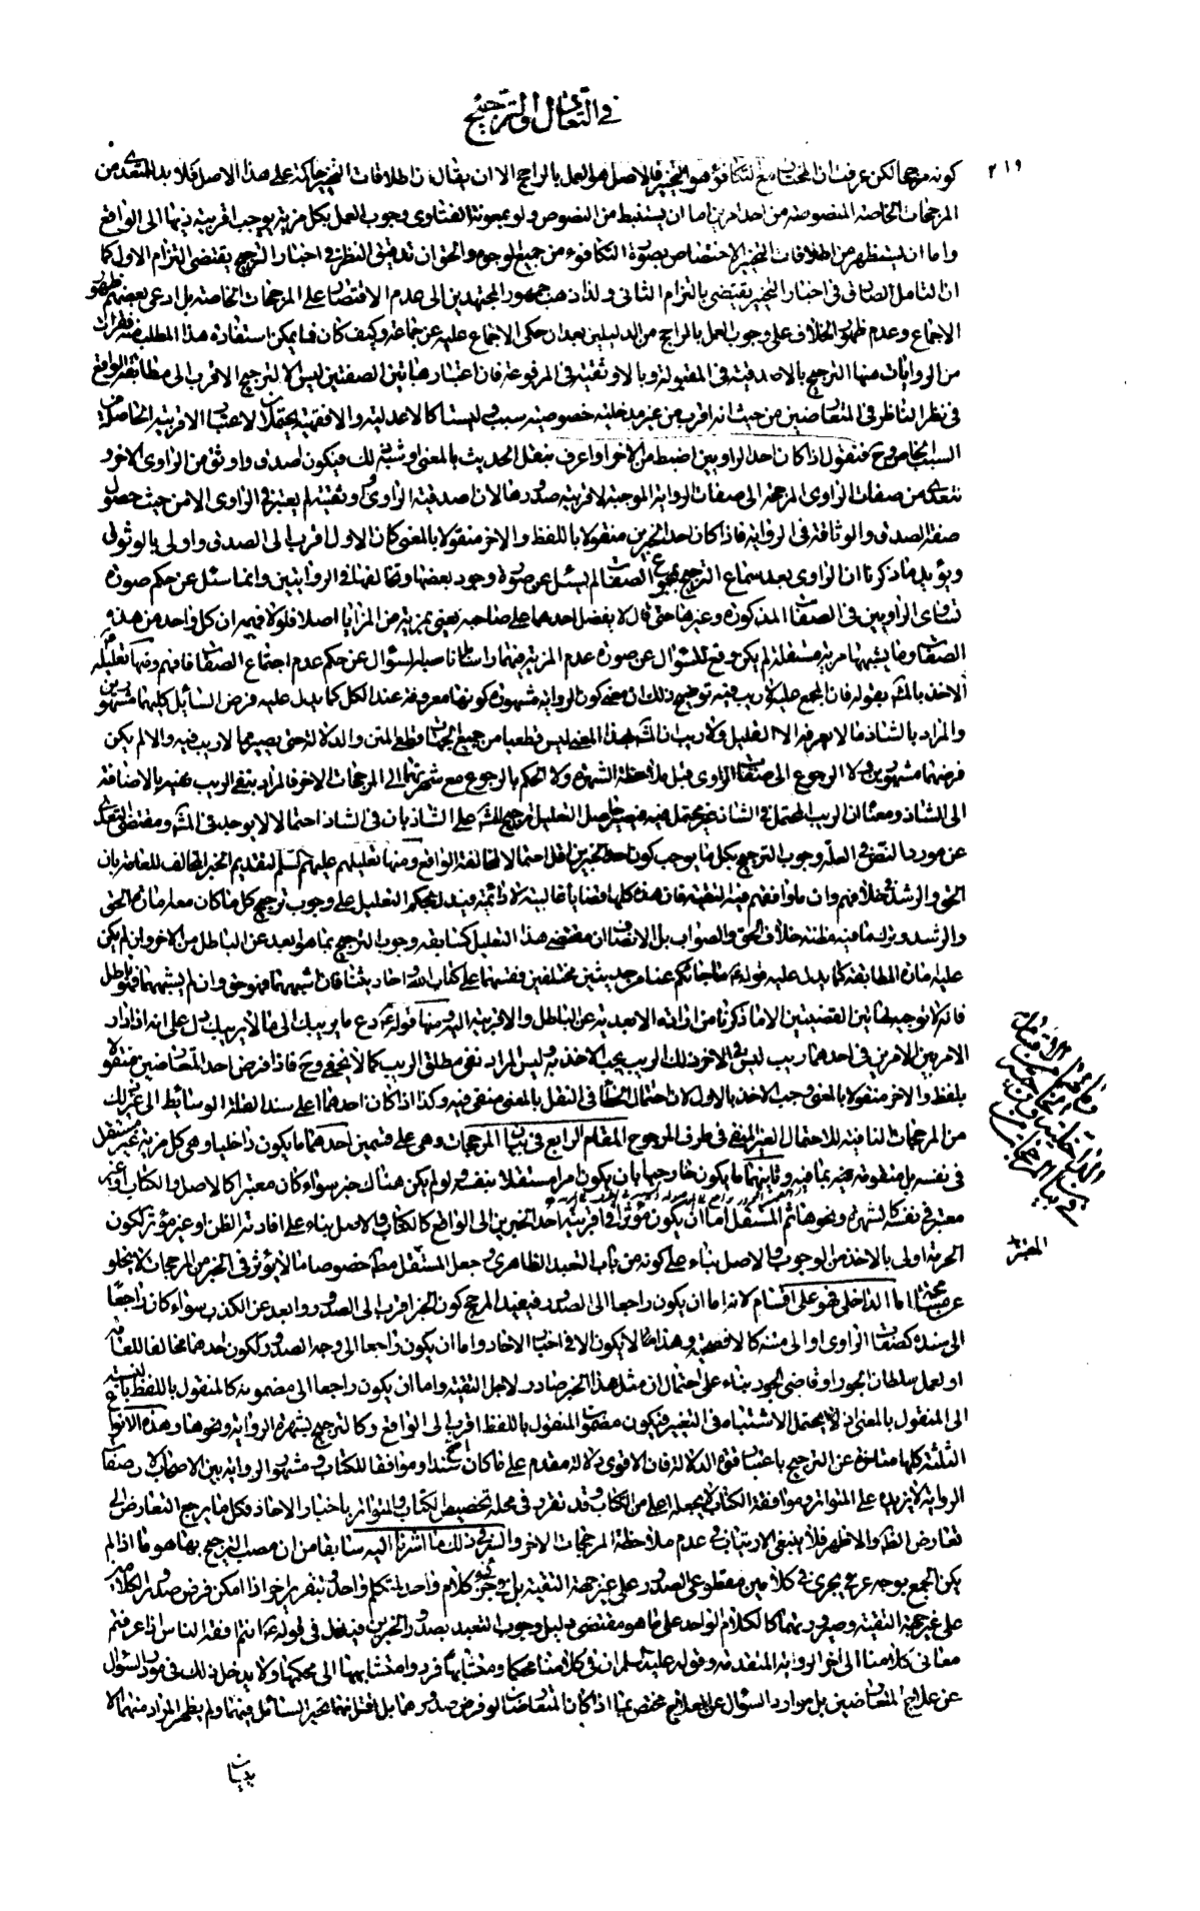 في التعادل والترجيح
٢١٩
كونه مرجحا لكن عرفت ان المختار مع التكافؤ هو التخيير فالاصل هو العمل بالراجح الا ان يقال ان اطلاقات التخيير حاكمة على هذا الاصل فلا بد للمتعدي من
المرجحات الخاصة المنصوصة من احد امرين اما ان يستنبط من النصوص ولو بمعونة الفتاوى وجوب العمل بكل مزية يوجب اقربية ذيها الى الواقع
واما ان يستظهر من اطلاقات التخيير الاختصاص بصورة التكافوء من جميع الوجوه والحق ان تدقيق النظر في اخبار الترجيح يقتضي التزام الاول كما
ان التامل الصادق في اخبار التخيير يقتضي بالتزام الثاني ولذا ذهب جمهور المجتهدين الى عدم الاقتصار على المرجحات الخاصة بل ادعى بعضهم ظهور
الاجماع وعدم ظهور الخلاف على وجوب العمل بالراجح من الدليلين بعد ان حكى الاجماع عليه عن جماعة وكيف كان فما يمكن استفادة هذا المطلب منه فقرات
من الروايات منها الترجيح بالاصدقية في المقبولة وبالاوثقية في المرفوعة فان اعتبار هاتين الصفتين ليس الا لترجيح الاقرب الى مطابقة الواقع
في نظر الناظر في المتعارضين من حيث انه اقرب من غير مدخلية خصوصية سبب وليستا كالاعدلية والافقهية يحتملان لاعتبار الاقربية الحاصلة من
السبب الخاص وح فنقول اذا كان احد الراويين اضبط من الاخر او اعرف بنقل الحديث بالمعنى او شبه ذلك فيكون اصدق واوثق من الراوي الاخر و
نتعدى من صفات الراوي المرجحة الى صفات الرواية الموجبة لاقربية صدورها لان اصدقية الراوي واوثقيته لم يعتبر في الراوي الا من حيث حصول
صفة الصدق والوثاقة في الرواية فاذا كان احد الخبرين منقولا باللفظ والاخر منقولا بالمعنى كان الاول اقرب الى الصدق واولى بالوثوق
ويؤيد ما ذكرنا ان الراوي بعد سماع الترجيح بمجموع الصفات لم يسئل عن صورة وجود بعضها وتخالفها في الروايتين وانما سئل عن حكم صورة
تساوي الراويين في الصفات المذكورة وغيرها حتى قال لا يفضل احدهما على صاحبه يعني بمزية من المزايا اصلا فلولا فهمه ان كل واحد من هذه
الصفات وما يشبهها مزية مستقلة لم يكن وقع للسؤال عن صورة عدم المزية فيهما راسا بل ناسبه السؤال عن حكم عدم اجتماع الصفات فافهم ومنها تعليله
الاخذ بالمشهور بقوله فان المجمع عليه لا ريب فيه توضيح ذلك ان معنى كون الرواية مشهورة كونها معروفة عند الكل كما يدل عليه فرض السائل كليهما مشهورين
والمراد بالشاذ ما لا يعرفه الا القليل ولا ريب ان المشهور بهذا المعنى ليس قطعيا من جميع الجهات قطعي المتن والدلالة حتى يصير مما لا ريب فيه والا لم يكن
فرضهما مشهورين ولا الرجوع الى صفات الراوي قبل ملاحظة الشهرة ولا الحكم بالرجوع مع شهرتهما الى المرجحات الاخر فالمراد بنفي الريب نفيه بالاضافة
الى الشاذ ومعناه ان الريب المحتمل في الشاذ غير محتمل فيه فيصير حاصل التعليل ترجيح المشهور على الشاذ بان في الشاذ احتمالا لا يوجد في المشهور ومقتضى التعدي
عن مورد النص في العلة وجوب الترجيح بكل ما يوجب كون احد الخبرين اقل احتمالا لمخالفة الواقع ومنها تعليلهم عليهم السلم لتقديم الخبر المخالف للعامة بان
الحق والرشد في خلافهم وان ما وافقهم فيه التقية فان هذه كلها قضايا غالبية لا دائمية فيدل بحكم التعليل على وجوب ترجيح كل ما كان معه امارة الحق
والرشد وترك ما فيه مظنة خلاف الحق والصواب بل الانصاف ان مقتضى هذا التعليل كسابقه وجوب الترجيح بما هو ابعد عن الباطل من الاخر وان لم يكن
عليه امارة المطابقة كما يدل عليه قوله ع ما جائكم عنا من حديثين مختلفين فقسهما على كتاب الله واحاديثنا فان اشبههما فهو حق وان لم يشبههما فهو باطل
فانه لا توجيه لهاتين القضيتين الا ما ذكرنا من ارادة الابعدية عن الباطل والاقربية اليه ومنها قوله ع دع ما يريبك الى ما لا يريبك دل على انه اذا دار
الامر بين الامرين في احدهما ريب ليس في الاخر ذلك الريب يجب الاخذ به وليس المراد نفي مطلق الريب كما لا يخفى وح فاذا فرض احد المتعارضين منقولا
بلفظه والاخر منقولا بالمعنى وجب الاخذ بالاول لان احتمال الخطأ في النقل بالمعنى منفي فيه وكذا اذا كان احدهما اعلى سندا لقلة الوسائط الى غير ذلك
من المرجحات النافية للاحتمال الغير المنفي في طرف المرجوح المقام الرابع في بيان المرجحات وهي على قسمين احدهما ما يكون داخليا وهي كل مزية غير مستقل
في نفسه بل متقومة بما فيه وثانيهما ما يكون خارجيا بان يكون امرا مستقلا بنفسه ولو لم يكن هناك خبر سواء كان معتبرا كالاصل والكتاب او غير
معتبر في نفسه كالشهرة ونحوها ثم المستقل اما ان يكون مؤثرا في اقربية احد الخبرين الى الواقع كالكتاب والاصل بناء على افادته الظن او غير مؤثر ككون
الحرمة اولى بالاخذ من الوجوب والاصل بناء على كونه من باب التعبد الظاهري وجعل المستقل مطلقا خصوصا ما لا يؤثر في الخبر من المرجحات لا يخلو
عن مسامحة اما الداخلي فهو على اقسام لانه اما ان يكون راجعا الى الصدور فيفيد المرجح كون الخبر اقرب الى الصدور وابعد عن الكذب سواء كان راجعا
الى سنده كصفات الراوي او الى متنه كالافصحية وهذا لا يكون الا في اخبار الاحاد واما ان يكون راجعا الى وجه الصدور ككون احدهما مخالفا للعامة
او لعمل سلطان الجور او قاضي الجور بناء على احتمال ان مثل هذا الخبر صادر لاجل التقية واما ان يكون راجعا الى مضمونه كالمنقول باللفظ بالنسبة
الى المنقول بالمعنى اذ يحتمل الاشتباه في التعبير فيكون مضمون المنقول باللفظ اقرب الى الواقع وكالترجيح بشهرة الرواية ونحوها وهذه الانواع
الثلثة كلها متاخرة عن الترجيح باعتبار قوة الدلالة فان الاقوى دلالة مقدم على ما كان اصح سندا وموافقا للكتاب ومشهور الرواية بين الاصحاب لان صفات
الرواية لا يزيده على المتواتر وموافقة الكتاب لا يجعله اعلى من الكتاب وقد تقرر في محله تخصيص الكتاب والمتواتر باخبار الاحاد فكل ما يرجع التعارض الى
تعارض الظاهر والاظهر فلا ينبغي الارتياب في عدم ملاحظة المرجحات الاخر والسر في ذلك ما اشرنا اليه سابقا من ان مصب الترجيح بها هو ما اذا لم
يكن الجمع بوجه عرفي يجري في كلامين مقطوعي الصدور على غير جهة التقية بل في جزئي كلام واحد لمتكلم واحد وبتقرير اخر اذا امكن فرض صدور الكلامين
على غير جهة التقية وصيرورتهما كالكلام الواحد على ما هو مقتضى دليل وجوب التعبد بصدور الخبرين فيدخل في قوله ع انتم افقه الناس اذا عرفتم
معاني كلامنا الى اخر الرواية المتقدمة وقوله عليه السلم ان في كلامنا محكما ومتشابها فردوا متشابهها الى محكمها ولا يدخل ذلك في مورد السؤال
عن علاج المتعارضين بل موارد السؤال عن العلاج مختص بما اذا كان المتعارضان لو فرض صدورهما بل اقترانهما تحير السائل فيهما ولم يظهر المراد منهما الا
ببيان